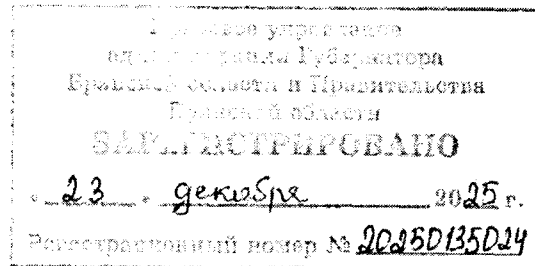 Правовое управление
администрации Губернатора
Брянской области и Правительства
Брянской области
ЗАРЕГИСТРИРОВАНО
« 23 » декабря 2025 г.
Регистрационный номер № 20250135024